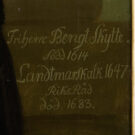 Friherre Bengt Skytte
Född 1614
Landtmarskalk 1647
Riks Råd
död 1683.